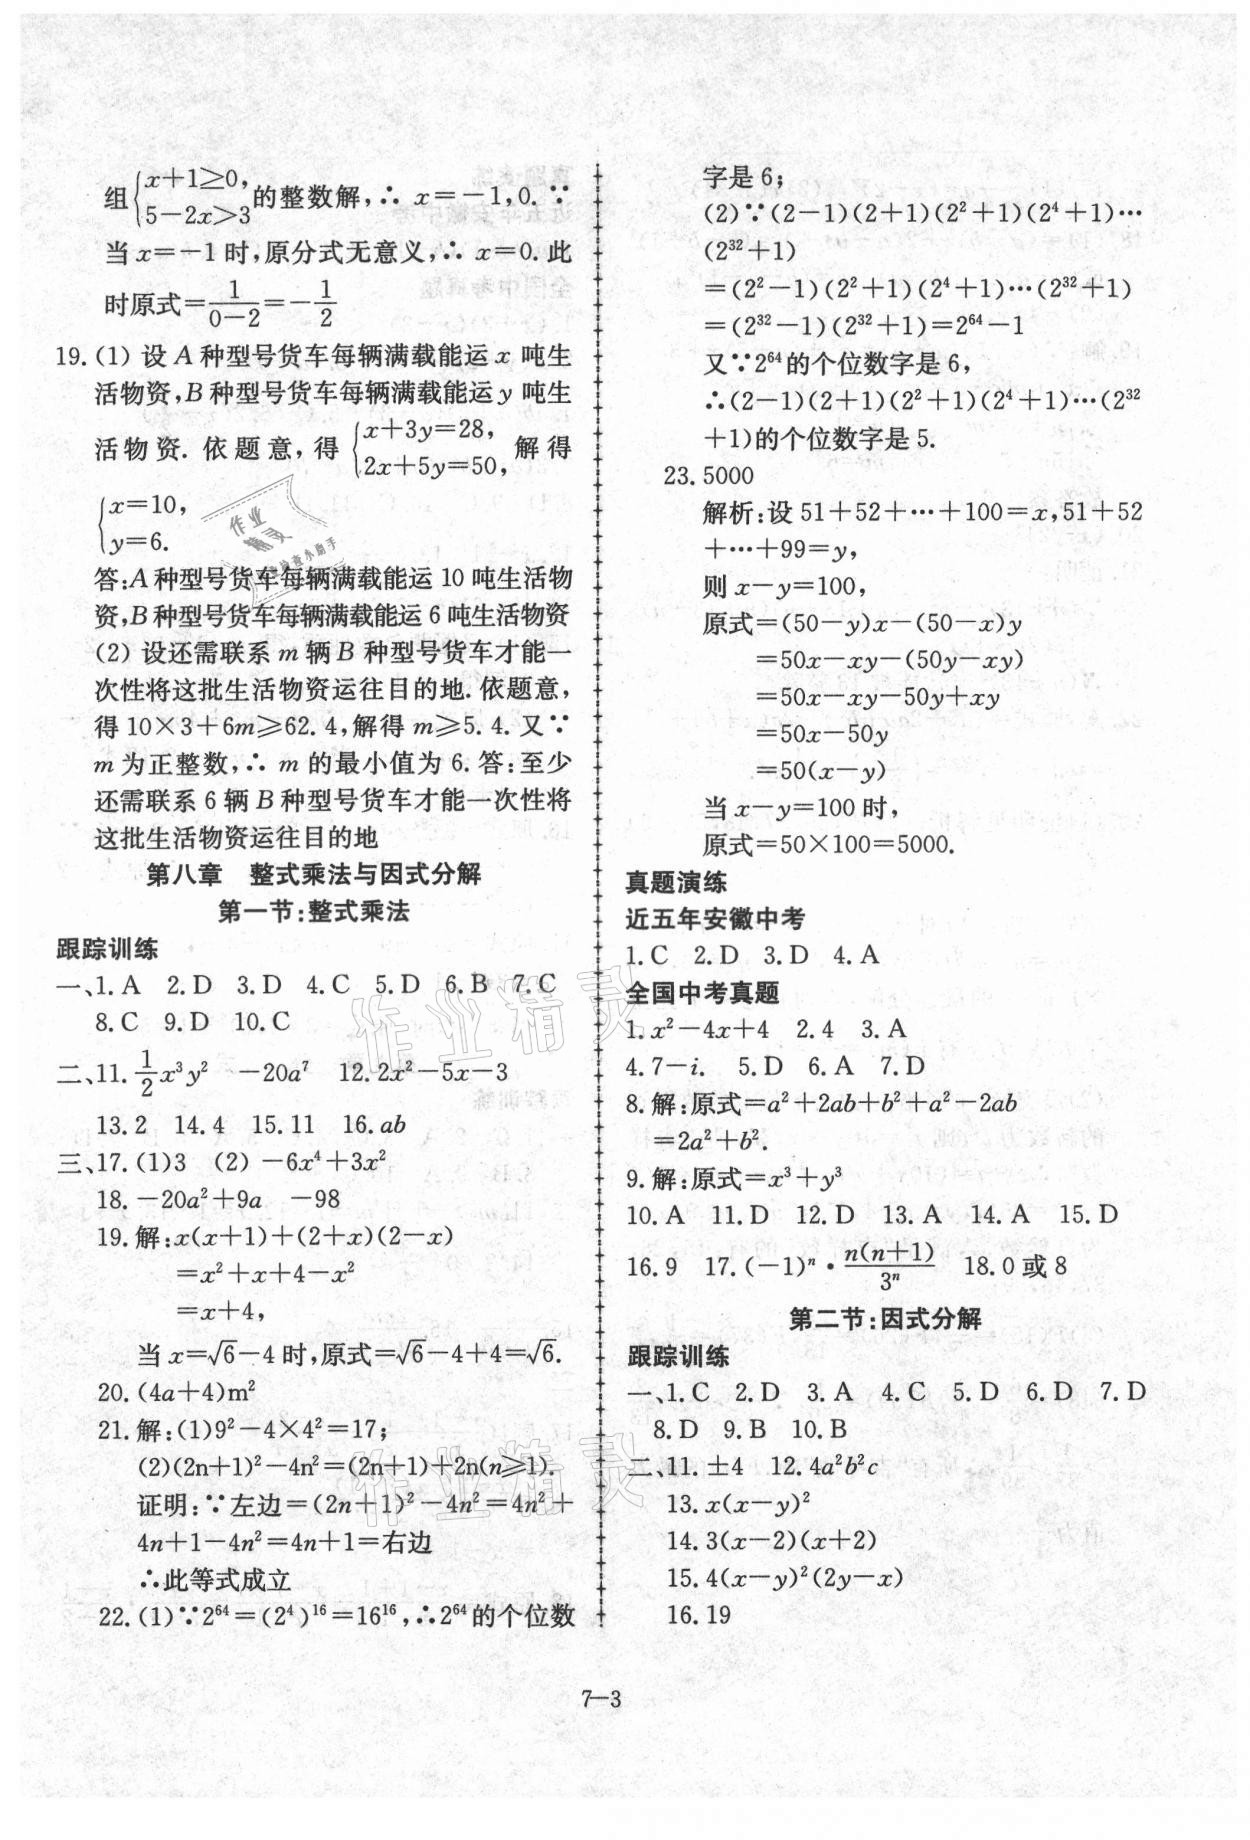 组{x+1≥0, 5-2x>3的整数解,∴ x=-1,0. ∵
当 x=-1 时,原分式无意义,∴ x=0. 此
时原式=1/(0-2)=-1/2
19. (1) 设 A 种型号货车每辆满载能运 x 吨生
活物资,B 种型号货车每辆满载能运 y 吨生
活物资. 依题意,得{x+3y=28, 2x+5y=50, 解得
{x=10, y=6.
答:A 种型号货车每辆满载能运 10 吨生活物
资,B 种型号货车每辆满载能运 6 吨生活物资
(2) 设还需联系 m 辆 B 种型号货车才能一
次性将这批生活物资运往目的地. 依题意,
得 10×3+6m≥62.4,解得 m≥5.4. 又∵
m 为正整数,∴ m 的最小值为 6. 答:至少
还需联系 6 辆 B 种型号货车才能一次性将
这批生活物资运往目的地
第八章 整式乘法与因式分解
第一节:整式乘法
跟踪训练
一、1. A 2. D 3. D 4. C 5. D 6. B 7. C
8. C 9. D 10. C
二、11. 1/2x³y² -20a⁷ 12. 2x²-5x-3
13. 2 14. 4 15. 11 16. ab
三、17. (1)3 (2) -6x⁴+3x²
18. -20a²+9a -98
19. 解:x(x+1)+(2+x)(2-x)
=x²+x+4-x²
=x+4,
当 x=√6-4 时,原式=√6-4+4=√6.
20. (4a+4)m²
21. 解:(1)9²-4×4²=17;
(2)(2n+1)²-4n²=(2n+1)+2n(n≥1).
证明:∵左边=(2n+1)²-4n²=4n²+
4n+1-4n²=4n+1=右边
∴此等式成立
22. (1)∵2⁶⁴=(2⁴)¹⁶=16¹⁶,∴2⁶⁴的个位数
字是 6;
(2)∵(2-1)(2+1)(2²+1)(2⁴+1)…
(2³²+1)
=(2²-1)(2²+1)(2⁴+1)…(2³²+1)
=(2³²-1)(2³²+1)=2⁶⁴-1
又∵2⁶⁴的个位数字是 6,
∴(2-1)(2+1)(2²+1)(2⁴+1)…(2³²
+1)的个位数字是 5.
23. 5000
解析:设 51+52+…+100=x,51+52
+…+99=y,
则 x-y=100,
原式=(50-y)x-(50-x)y
=50x-xy-(50y-xy)
=50x-xy-50y+xy
=50x-50y
=50(x-y)
当 x-y=100 时,
原式=50×100=5000.
真题演练
近五年安徽中考
1. C 2. D 3. D 4. A
全国中考真题
1. x²-4x+4 2. 4 3. A
4. 7-i. 5. D 6. A 7. D
8. 解:原式=a²+2ab+b²+a²-2ab
=2a²+b².
9. 解:原式=x³+y³
10. A 11. D 12. D 13. A 14. A 15. D
16. 9 17. (-1)ⁿ·n(n+1)/3ⁿ 18. 0 或 8
第二节:因式分解
跟踪训练
一、1. C 2. D 3. A 4. C 5. D 6. D 7. D
8. D 9. B 10. B
二、11. ±4 12. 4a²b²c
13. x(x-y)²
14. 3(x-2)(x+2)
15. 4(x-y)²(2y-x)
16. 19
7-3
作业精灵
作业精灵